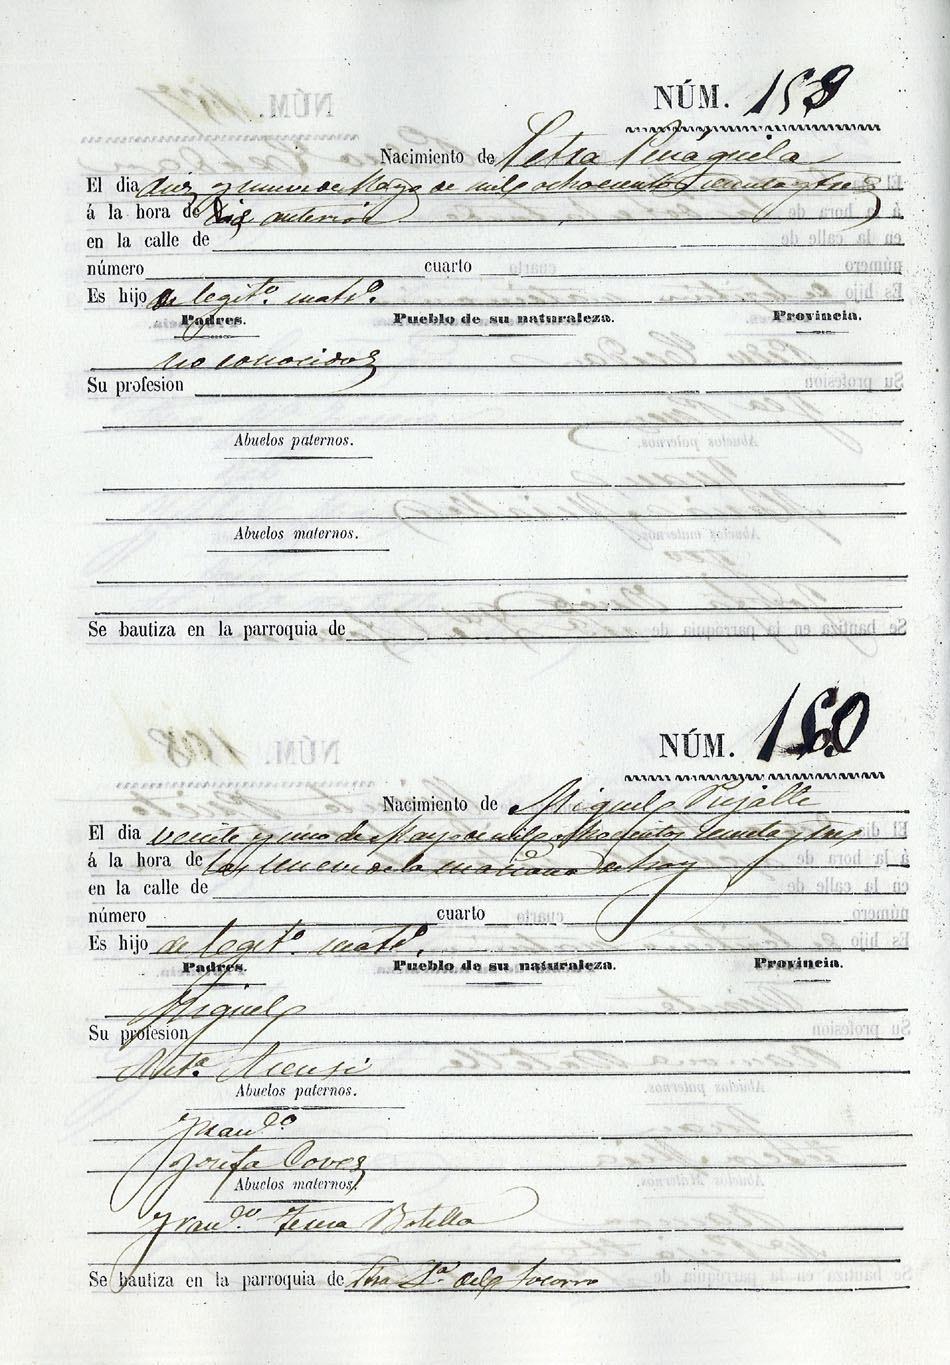 NÚM. 159
Nacimiento de Petra Penáguila
El dia diez y nueve de Mayo de mil ochocientos
á la hora de anterior
en la calle de
número cuarto
Es hijo de legitº. matº.
Padres. Pueblo de su naturaleza. Provincia.
no conocidos
Su profesion
Abuelos paternos.
Abuelos maternos.
Se bautiza en la parroquia de
NÚM. 160
Nacimiento de Miguel Pujalte
El dia veinte y uno de Mayo de mil ochocientos
á la hora de las nueve de la mañana de hoy
en la calle de
número cuarto
Es hijo de legitº. matº.
Padres. Pueblo de su naturaleza. Provincia.
Miguel
Su profesion
Antª. Asensi
Abuelos paternos.
Franco
Josefa Coves
Abuelos maternos.
Franco Botella
Se bautiza en la parroquia de del Socorro